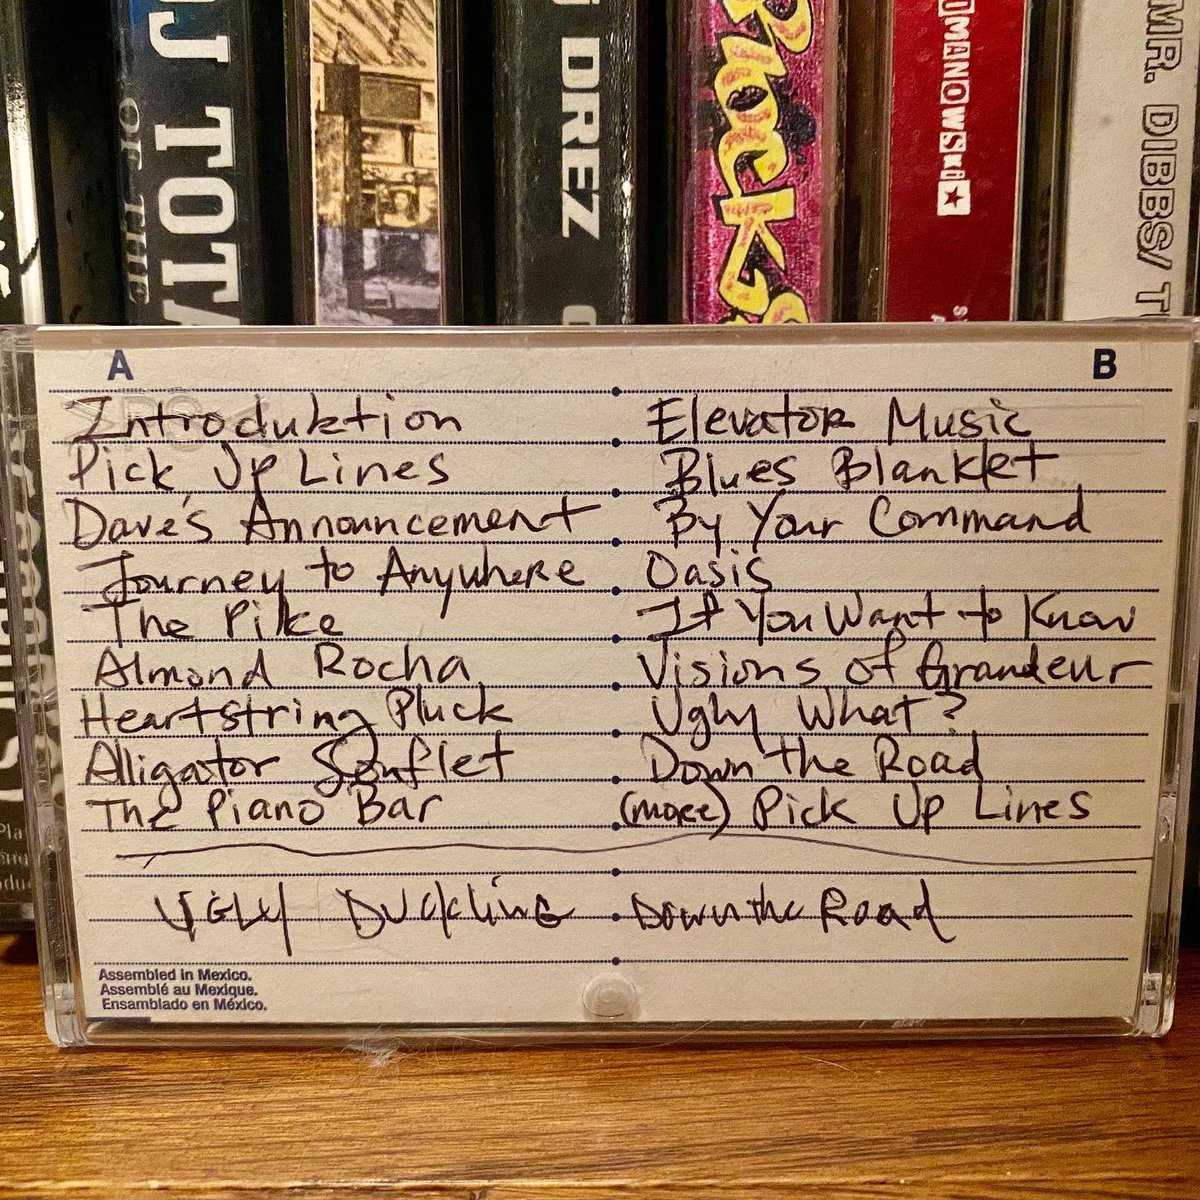 DJ TOTA
OF THE
DREZ
ROCKS
OMANOWSKI
MR. DIBBS/ T
A B
Introduktion
Pick Up Lines
Dave's Announcement
Journey to Anywhere
The Pike
Almond Rocha
Heartstring Pluck
Alligator Souflet
The Piano Bar
Elevator Music
Blues Blanklet
By Your Command
Oasis
If You Want to Know
Visions of Grandeur
Ugly What?
Down the Road
(more) Pick Up Lines
UGLY DUCkling Down the Road
Assembled in Mexico.
Assemblé au Mexique.
Ensamblado en México.